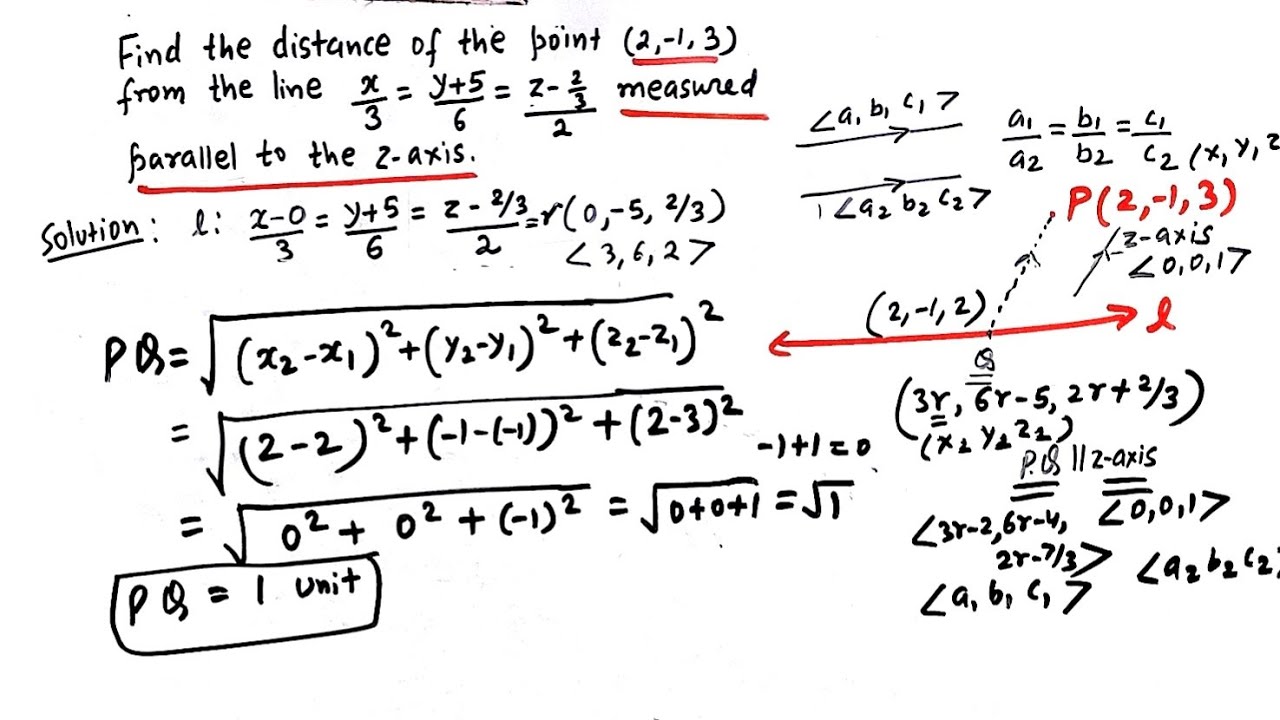 Find the distance of the point (2,-1,3)
from the line x/3 = y+5/6 = z-2/3/2 measured
parallel to the z-axis.
Solution: l: x-0/3 = y+5/6 = z-2/3/2 = r (0,-5,2/3)
<3,6,2>
PQ = √(x₂-x₁)²+(y₂-y₁)²+(z₂-z₁)²
= √(2-2)²+(-1-(-1))²+(2-3)²
-1+1=0
= √0²+0²+(-1)² = √0+0+1 = √1
PQ = 1 unit
<a₁ b₁ c₁>
a₁/a₂ = b₁/b₂ = c₁/c₂
<a₂ b₂ c₂>
(x₁ y₁ z
P(2,-1,3)
z-axis
<0,0,1>
(2,-1,2)
l
Q
(3r, 6r-5, 2r+2/3)
(x₂ y₂ z₂)
PQ || z-axis
<3r-2, 6r-4,
2r-7/3>
<0,0,1>
<a₁ b₁ c₁>
<a₂ b₂ c₂>